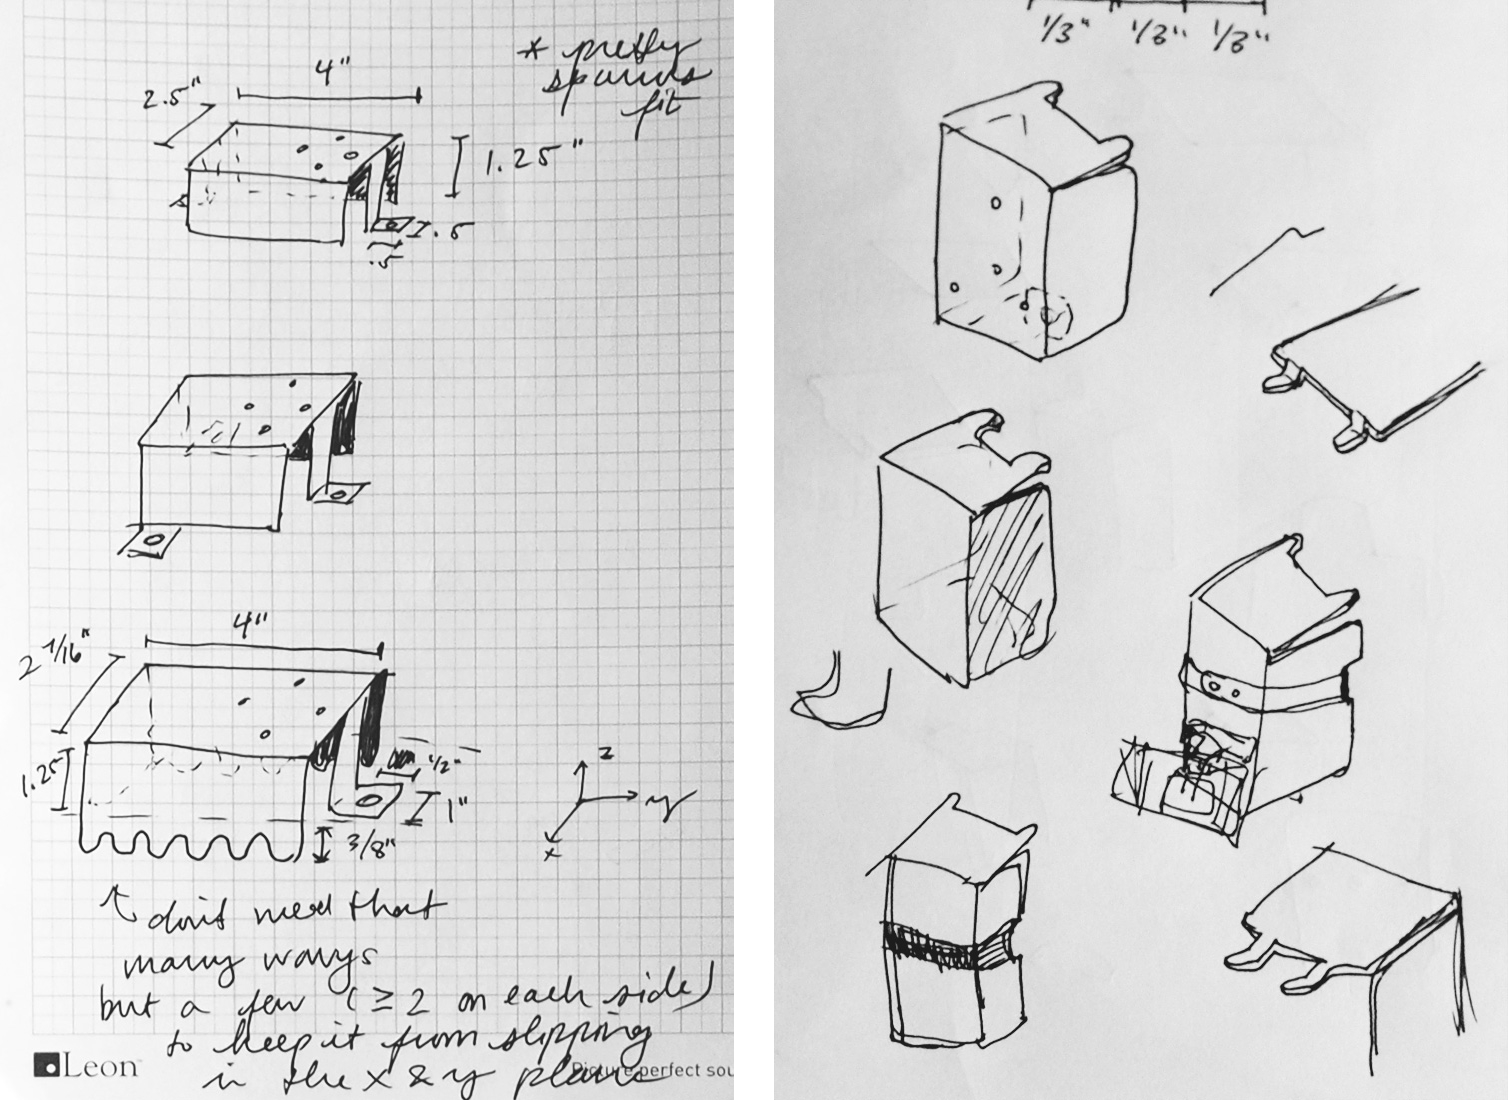 * pretty
spacious
fit
4"
2.5"
1.25"
.5
.5
4"
2 7/16"
1.25
1/2"
1"
3/8"
z
y
x
↑ don't need that
many wavys
but a few (≥ 2 on each side)
to keep it from slipping
in the x & y plane
Leon™
Picture perfect sou
1/3" 1/3" 1/3"